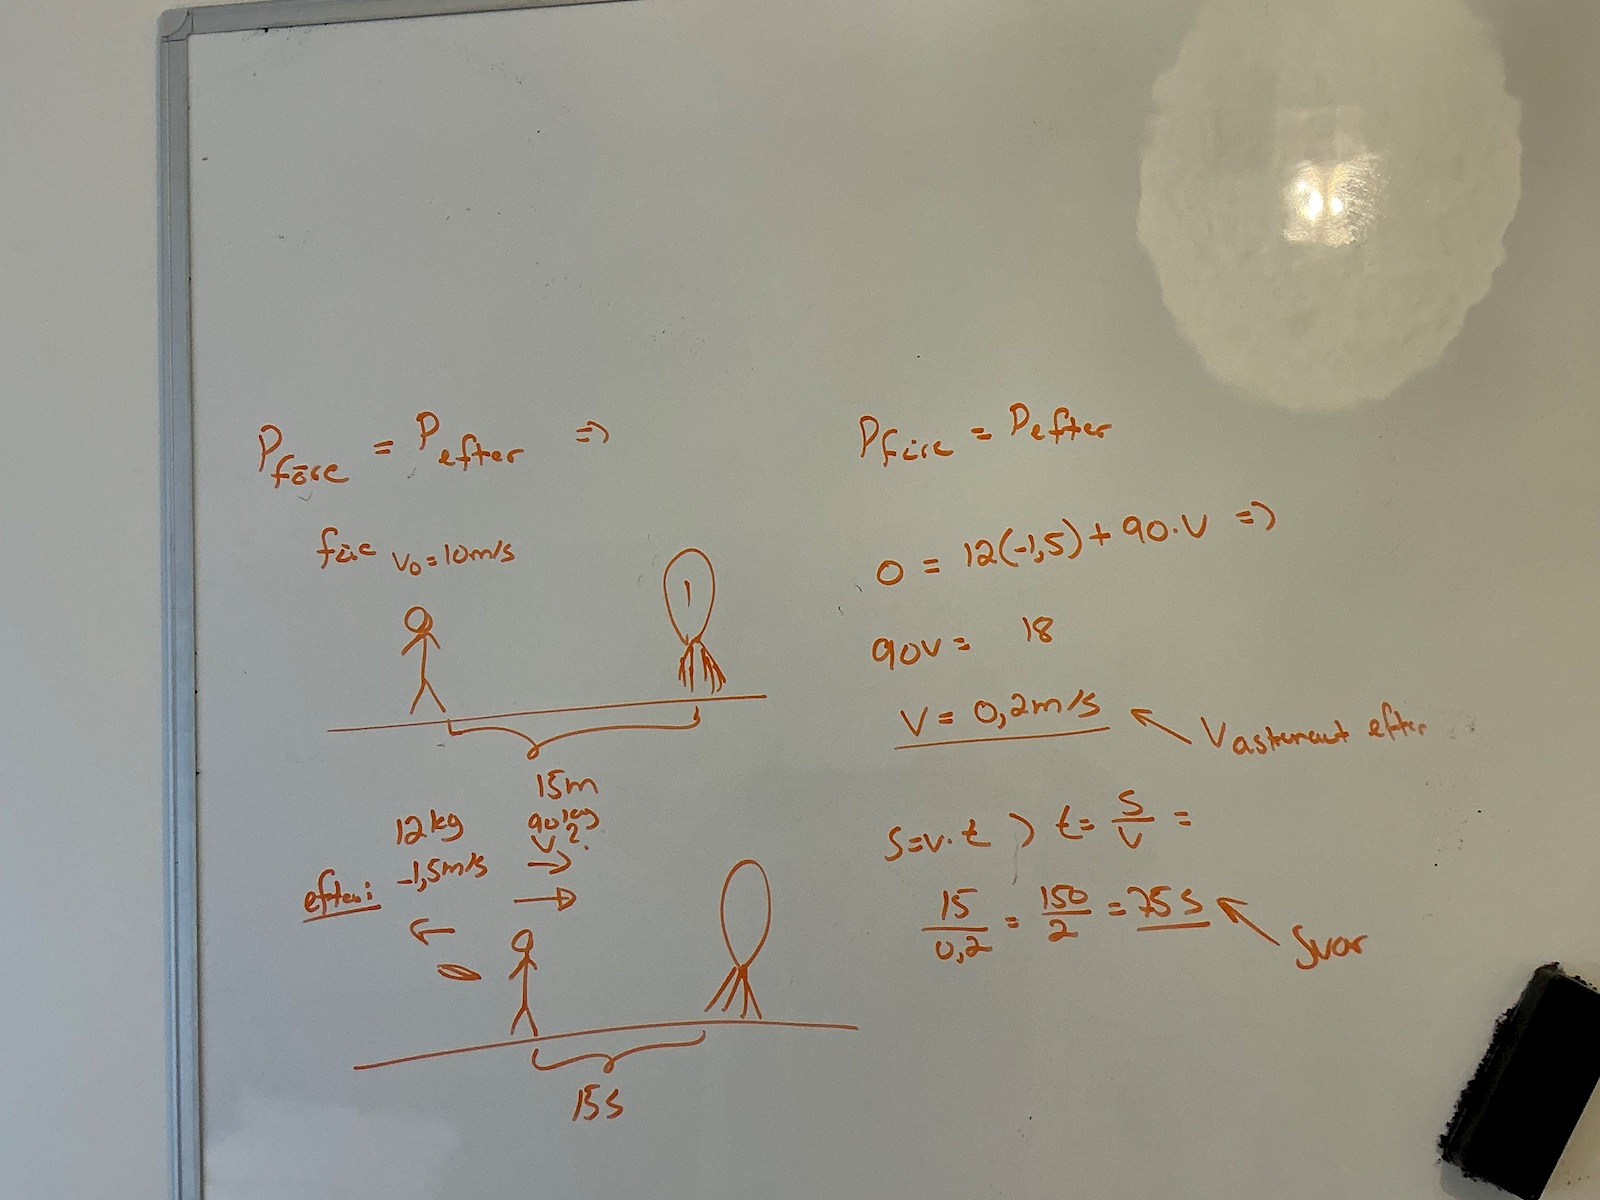 Pföre = Pefter =>
före v0 = 10m/s
15m
12kg 90kg
-1,5m/s v?
efter:
15s
Pföre = Pefter
0 = 12(-1,5) + 90·v =>
90v = 18
v = 0,2m/s
Vastronaut efter
s=v·t > t= s/v =
15/0,2 = 150/2 = 75 s
Svar